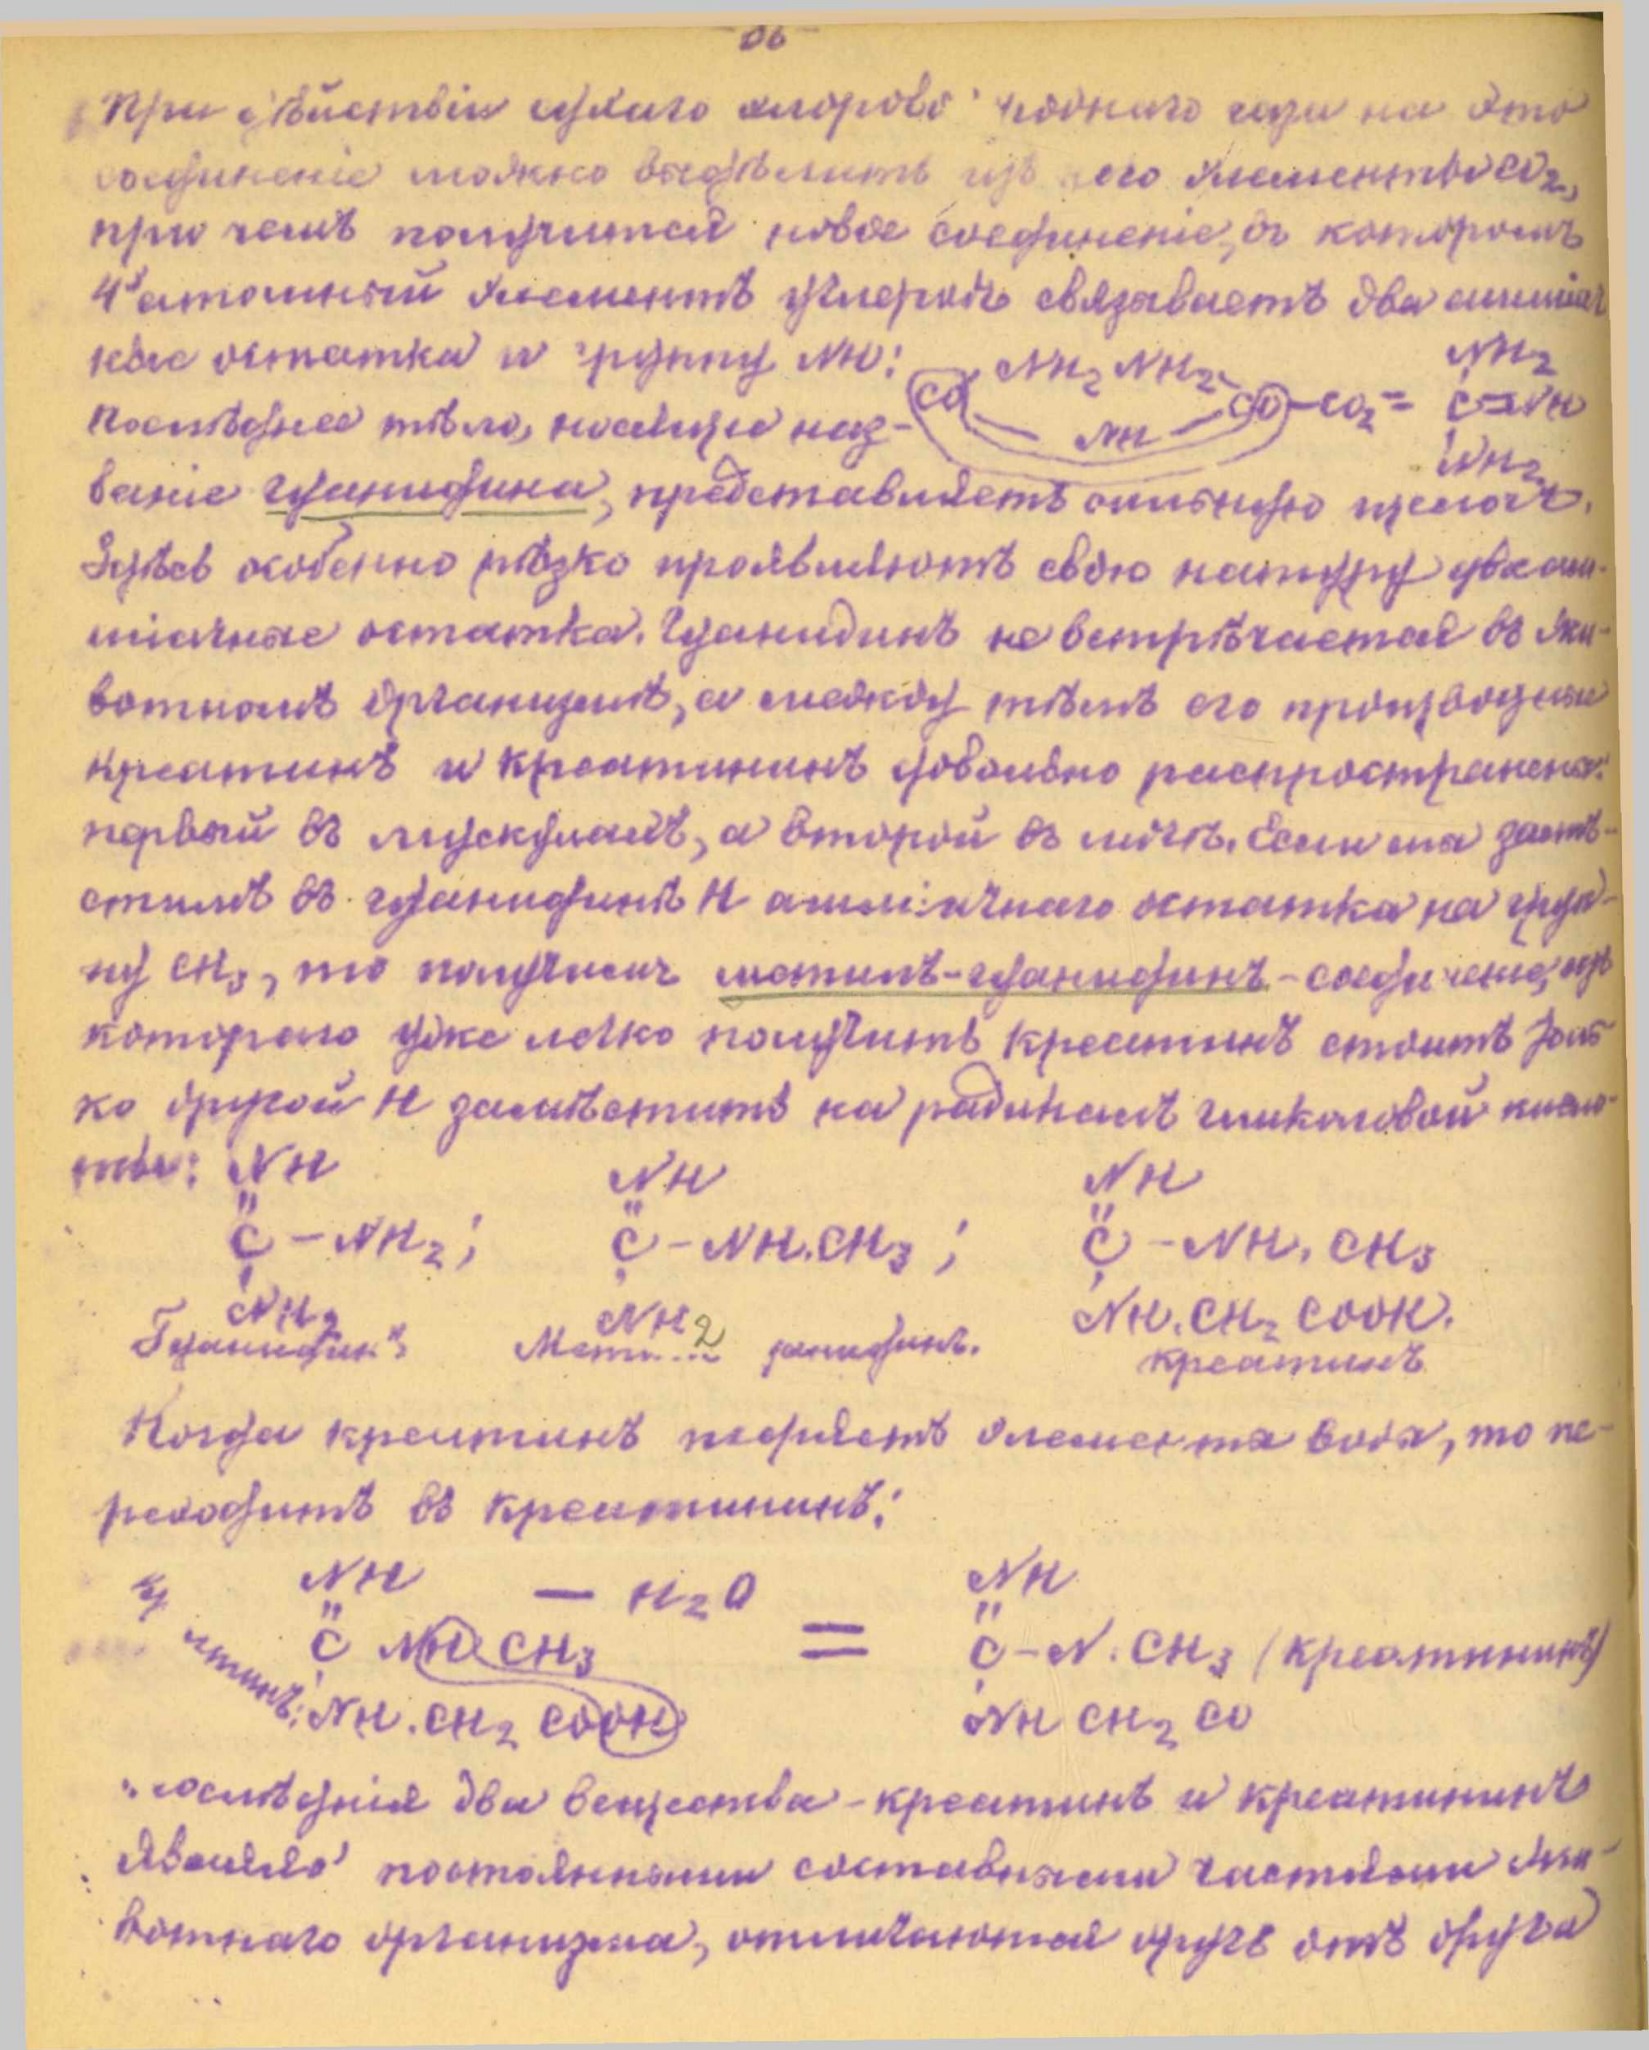 При дѣйствіи сухаго хлорово роднаго газа на это
соединеніе можно выдѣлить изъ его элементы CO2,
при чемъ получится новое соединеніе, въ которомъ
4х атомный элементъ углеродъ связываетъ два амміач
ные остатка и группу NH:
CO NH2 NH2 CO - CO2 = NH2 C=NH NH2
NH
Послѣднее тѣло, носящее наз-
ваніе гуанидина, представляетъ сильную щелочь.
Здѣсь особенно рѣзко проявляютъ свою натуру два ам-
міачные остатка. Гуанидинъ не встрѣчается въ жи-
вотномъ организмѣ, а между тѣмъ его производные
креатинъ и креатининъ довольно распространены:
первый въ мускулахъ, а второй въ мочѣ. Если мы замѣ-
стимъ въ гуанидинѣ H амміачнаго остатка на груп-
пу CH3, то получимъ метилъ-гуанидинъ - соединеніе, изъ
котораго уже легко получить креатинъ стоитъ толь
ко другой H замѣстить на радикалъ гликоловой кисло-
ты:
NH NH NH
C - NH2; C - NH.CH3; C - NH.CH3
NH2 NH2 NH.CH2 COOH.
Гуанидинъ Мет... гуанидинъ. креатинъ
Когда креатинъ теряетъ элементы воды, то пе-
реходитъ въ креатининъ:
NH - H2O NH
C NH CH3 = C - N . CH3 (креатининъ)
атинъ: NH.CH2 COOH NH CH2 CO
послѣднія два вещества - креатинъ и креатининъ
являясь постоянными составными частями жи-
вотнаго организма, отличаются другъ отъ друга